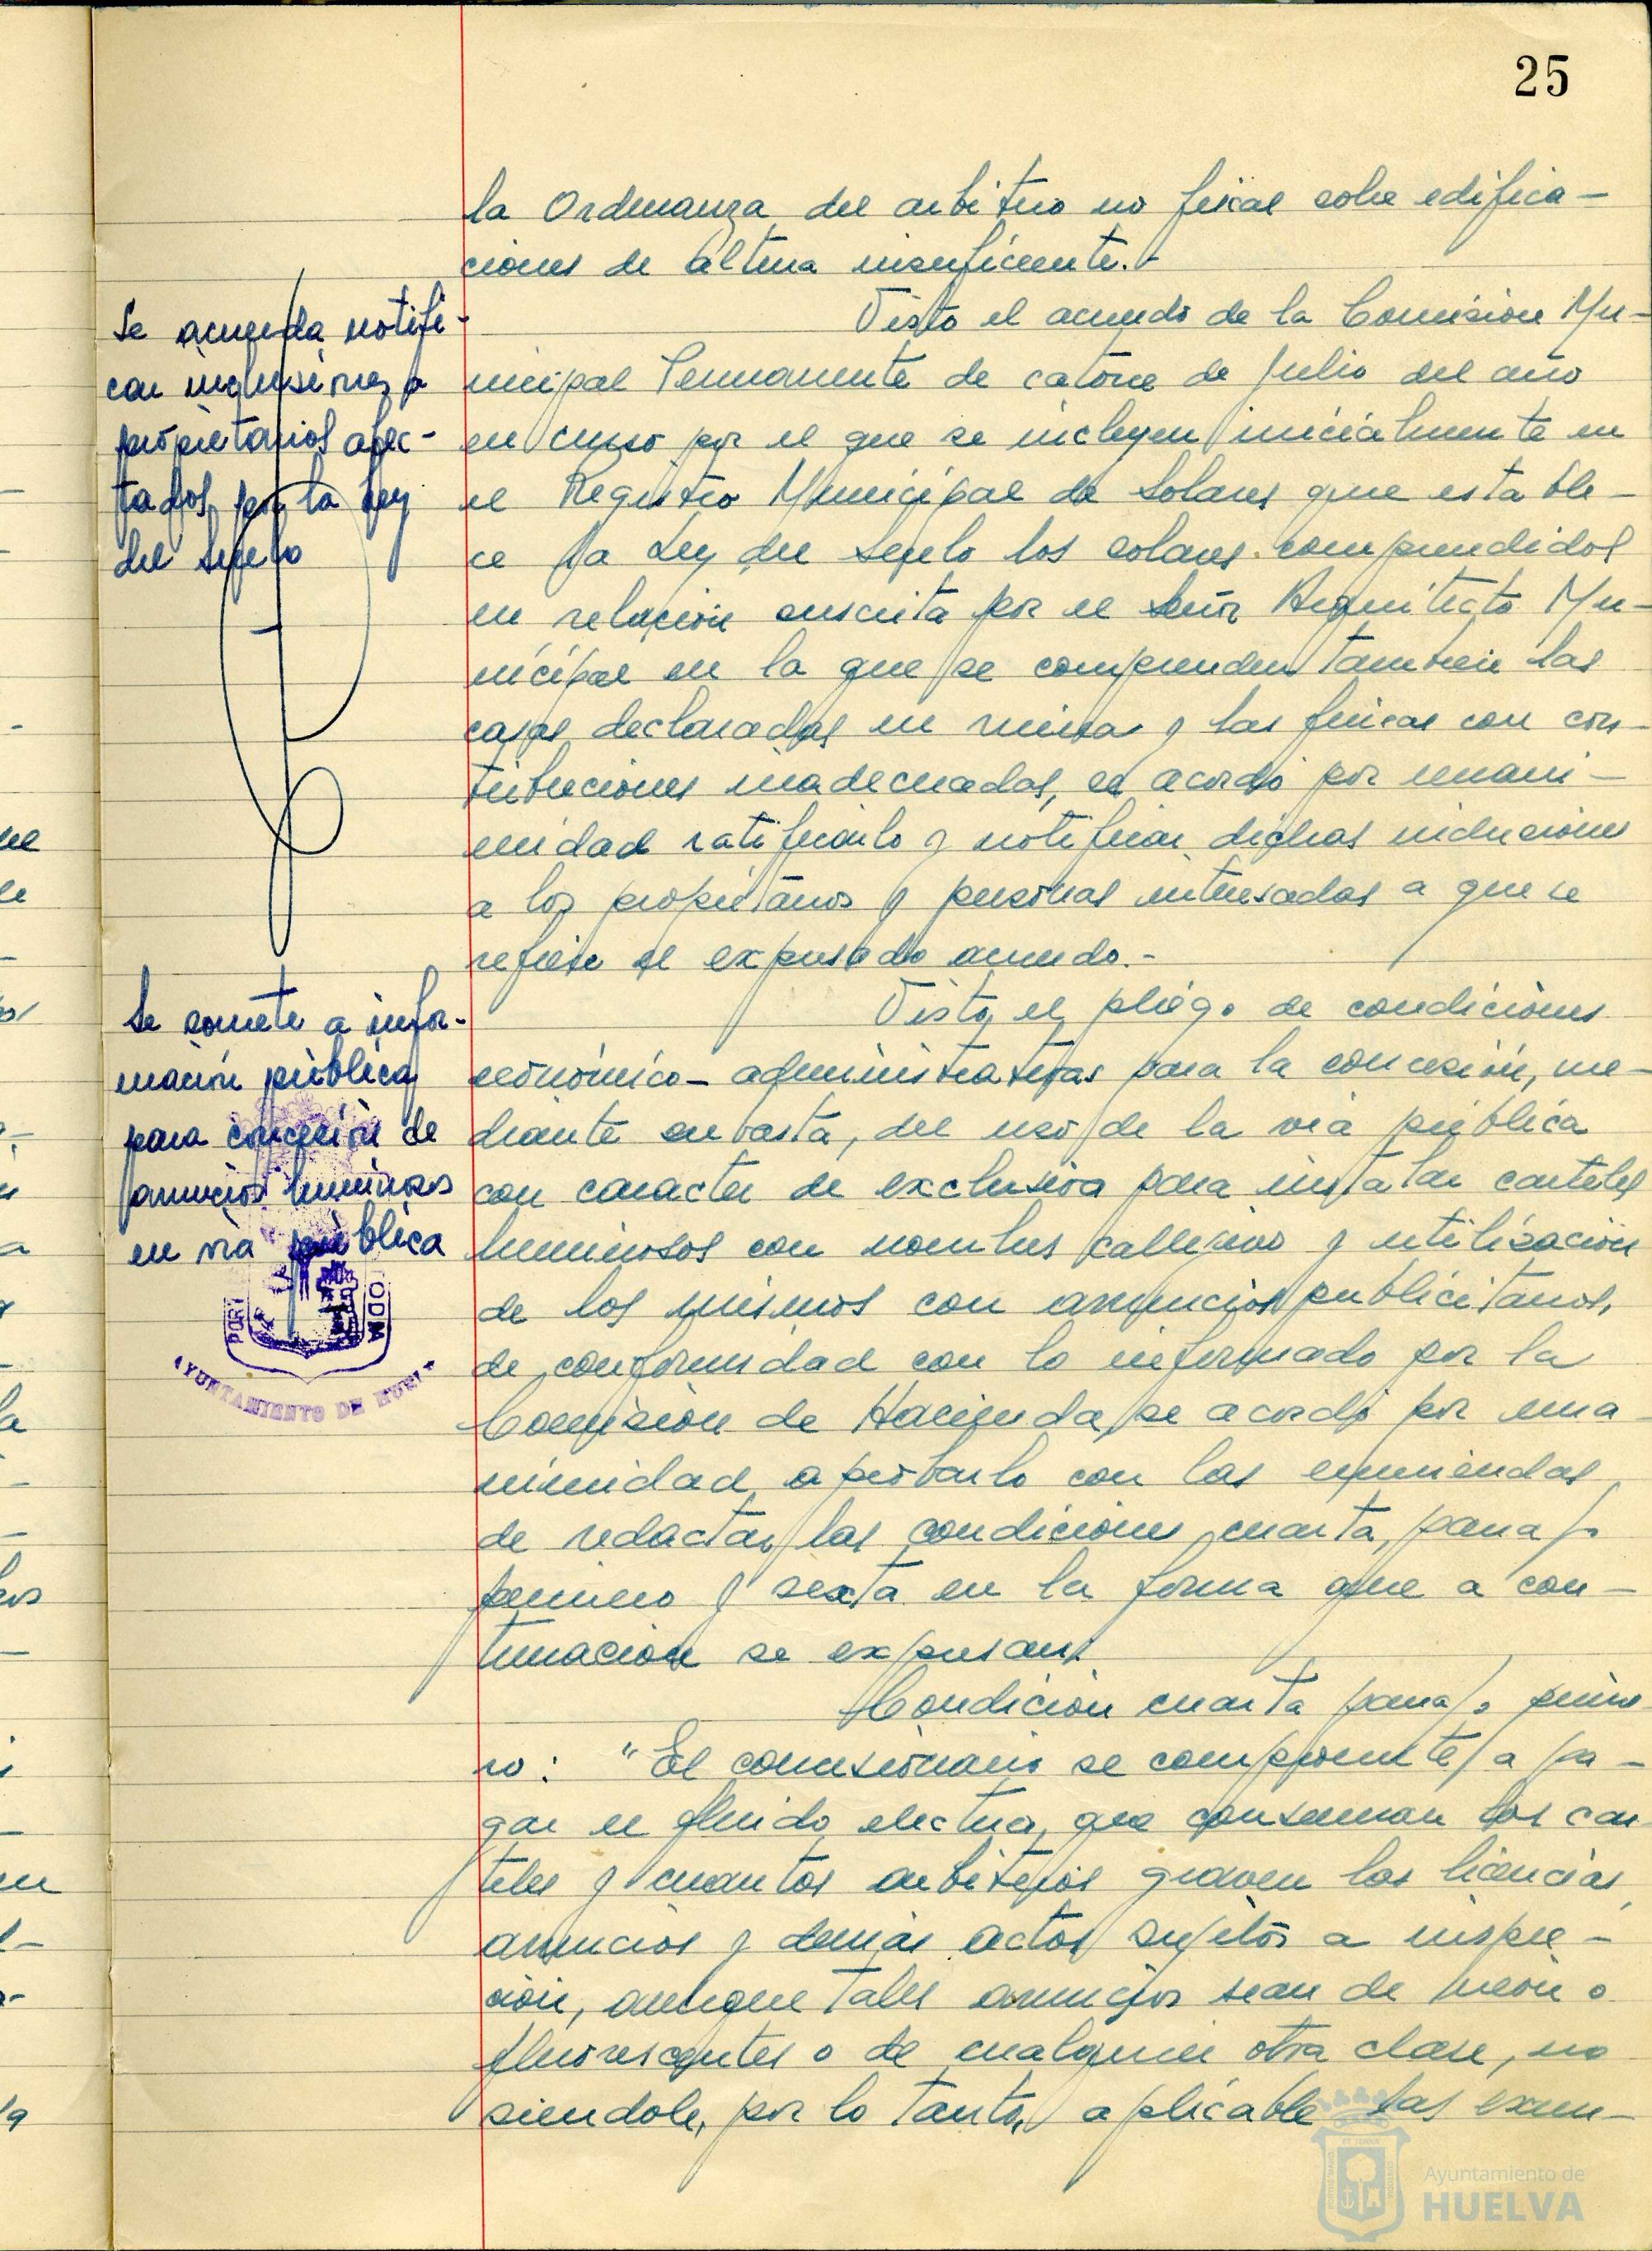 25
la Ordenanza del arbitrio no fiscal sobre edifica-
ciones de altura insuficiente.-
Se acuerda notifi-
car inclusiones a
propietarios afec-
tados por la Ley
del Suelo
Visto el acuerdo de la Comisión Mu-
nicipal Permanente de catorce de Julio del año
en curso por el que se incluyen inicialmente en
el Registro Municipal de Solares que estable-
ce la Ley del Suelo los solares comprendidos
en relación suscrita por el Señor Arquitecto Mu-
nicipal en la que se comprenden tambien las
casas declaradas en ruinas y las fincas con cons-
trucciones inadecuadas, se acordó por unani-
midad ratificarlo y notificar dichas inclusiones
a los propietarios y personas interesadas a que se
refiere el expresado acuerdo.-
Se somete a infor-
mación pública
para concesión de
anuncios luminosos
en via pública
AYUNTAMIENTO DE HUELVA
Visto el pliego de condiciones
económico-administrativas para la concesión, me-
diante subasta, del uso de la via pública
con caracter de exclusiva para instalar carteles
luminosos con nombres callejeros y utilización
de los mismos con anuncios publicitarios,
de conformidad con lo informado por la
Comisión de Hacienda, se acordó por una-
nimidad aprobarlo con las enmiendas
de redactar las condiciones cuarta, parrafo
primero y sexta en la forma que a con-
tinuación se expresan:
Condición cuarta parrafo prime
ro: "El concesionario se compromete a pa-
gar el fluido electrico que consuman los car
teles y cuantos arbitrios graven las licencias,
anuncios y demás actos sujetos a inspec-
ción, aunque tales anuncios sean de neón o
fluorescentes o de cualquier otra clase, no
siendole, por lo tanto, aplicable las exen-
Ayuntamiento de
HUELVA